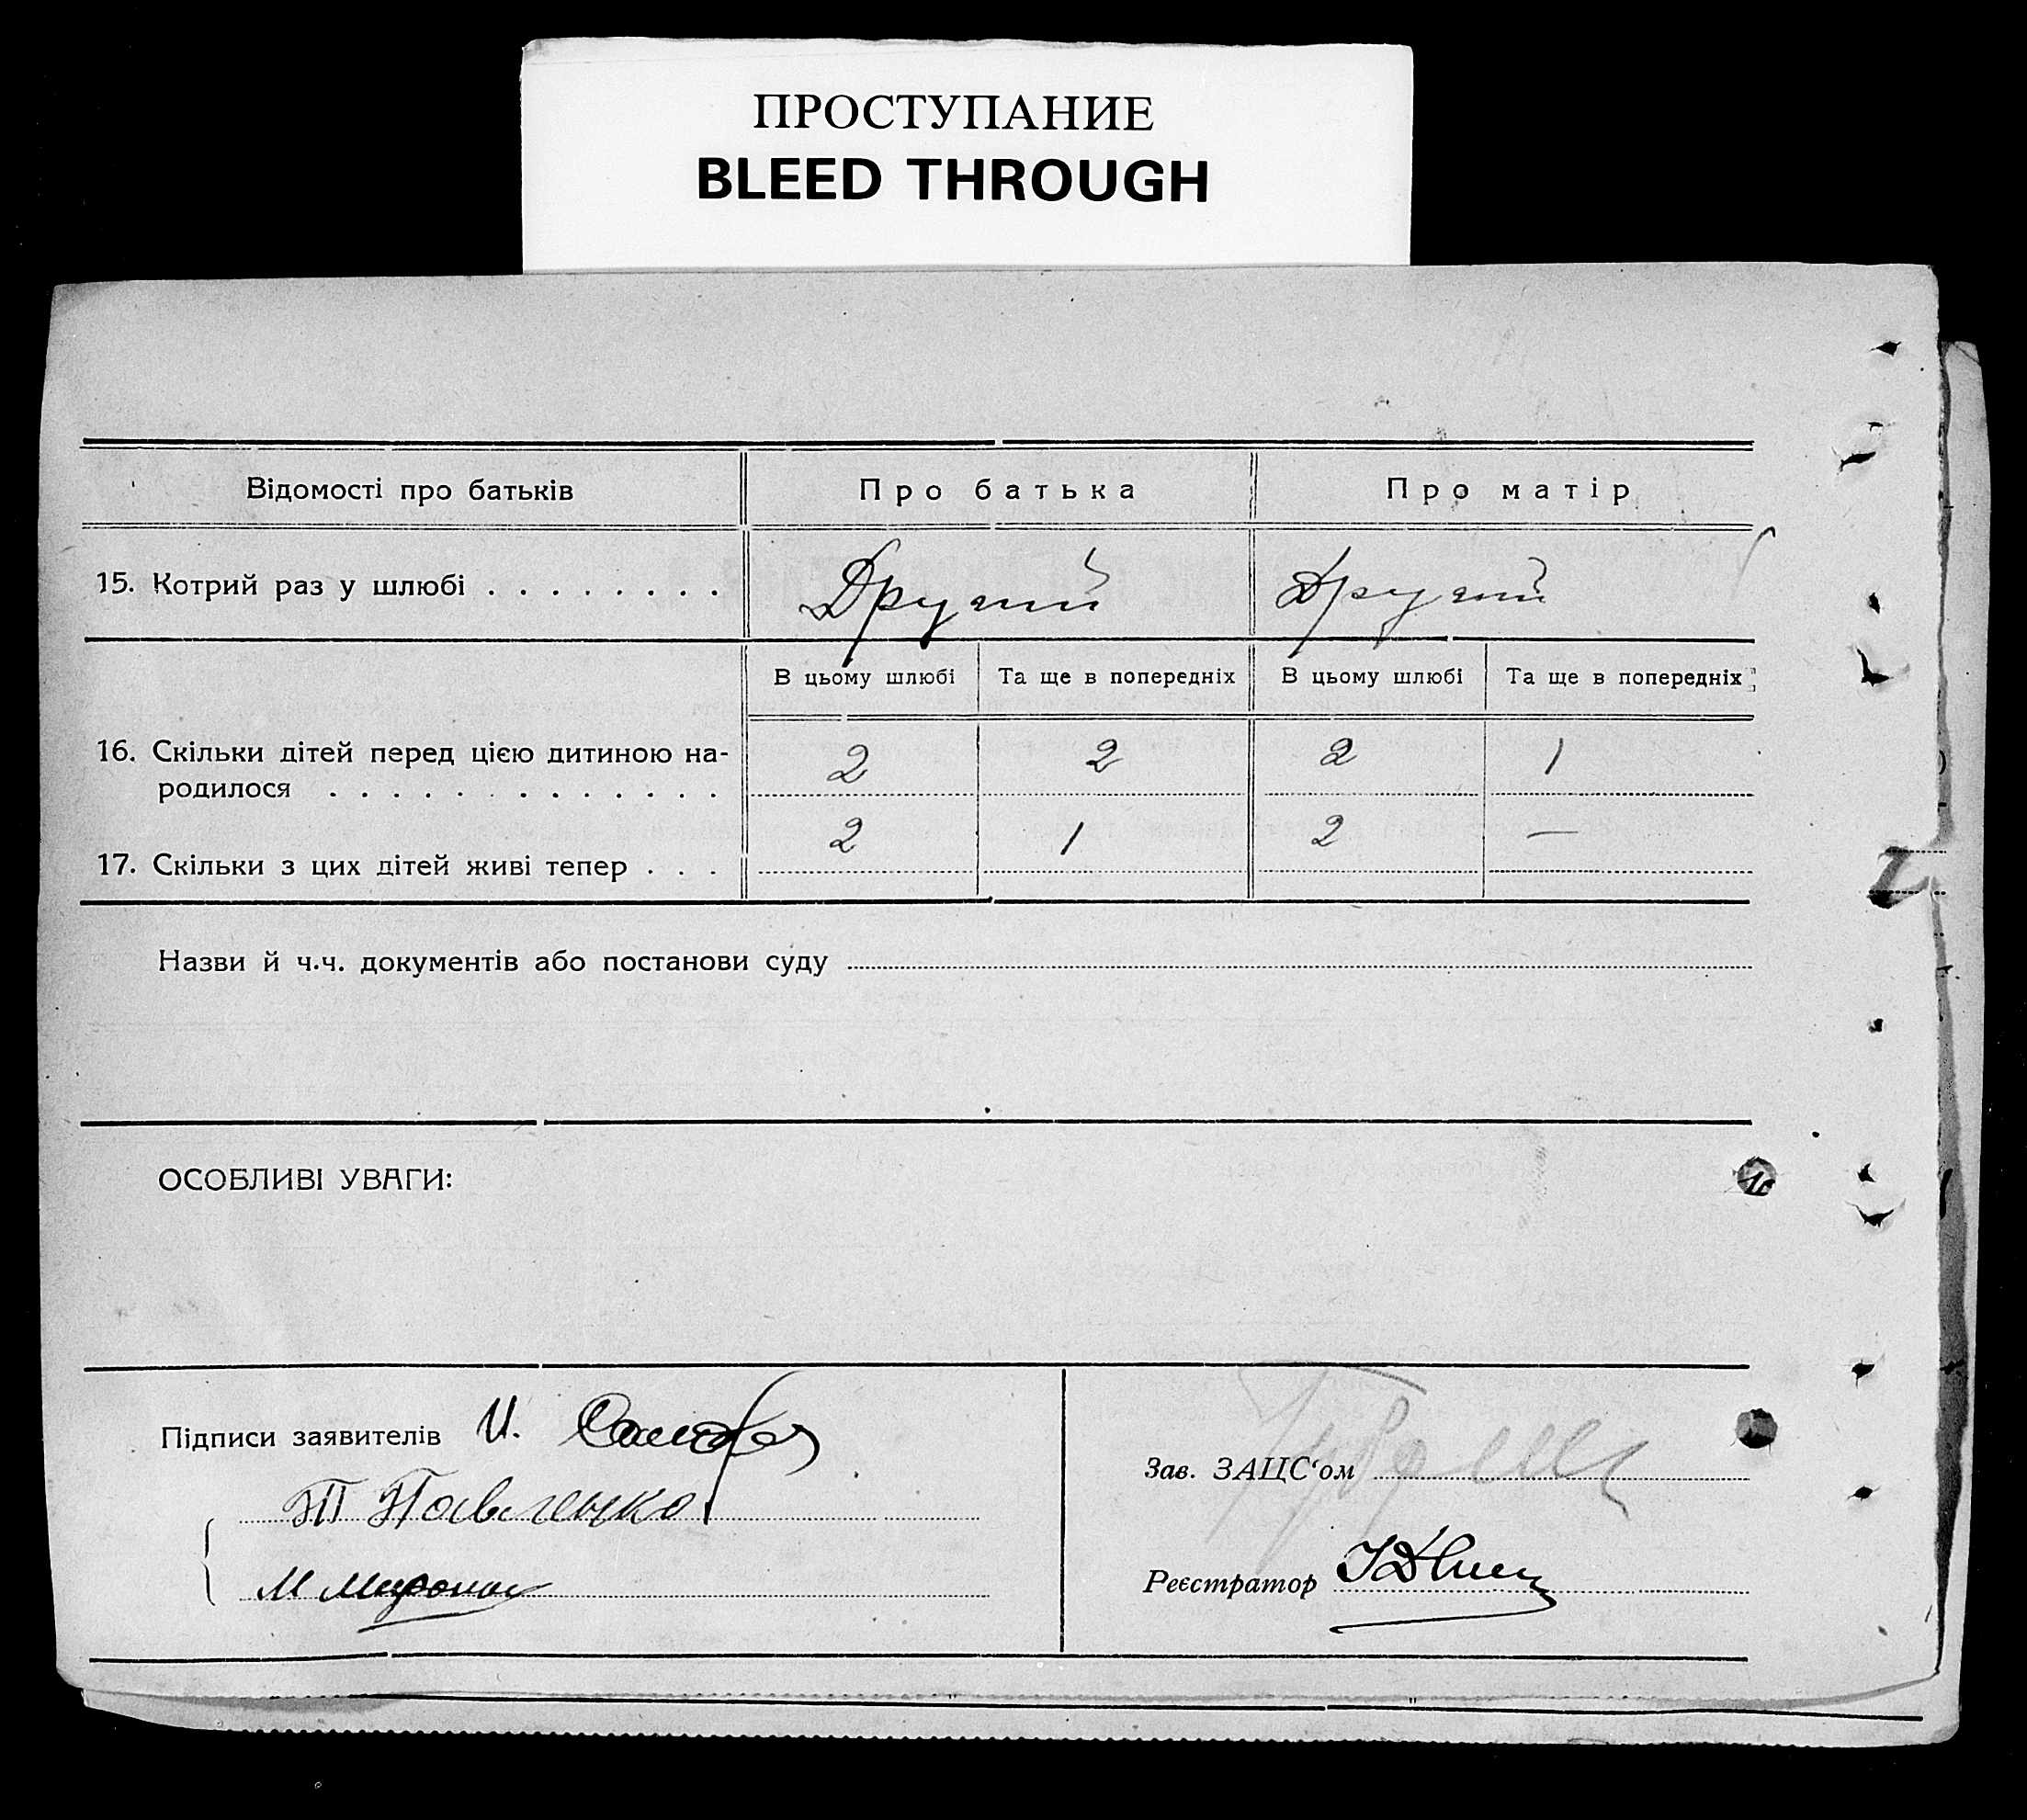 ПРОСТУПАНИЕ
BLEED THROUGH
Відомості про батьків
Про батька
Про матір
15. Котрий раз у шлюбі . . . . . . . .
Другий
Другий
В цьому шлюбі
Та ще в попередніх
В цьому шлюбі
Та ще в попередніх
16. Скільки дітей перед цією дитиною на-
родилося . . . . . . . . . . . . .
2
2
2
1
17. Скільки з цих дітей живі тепер . . .
2
1
2
—
Назви й ч.ч. документів або постанови суду
ОСОБЛИВІ УВАГИ:
Підписи заявителів И.
Т Павленко
М Миронов
Зав. ЗАЦС'ом
Реєстратор